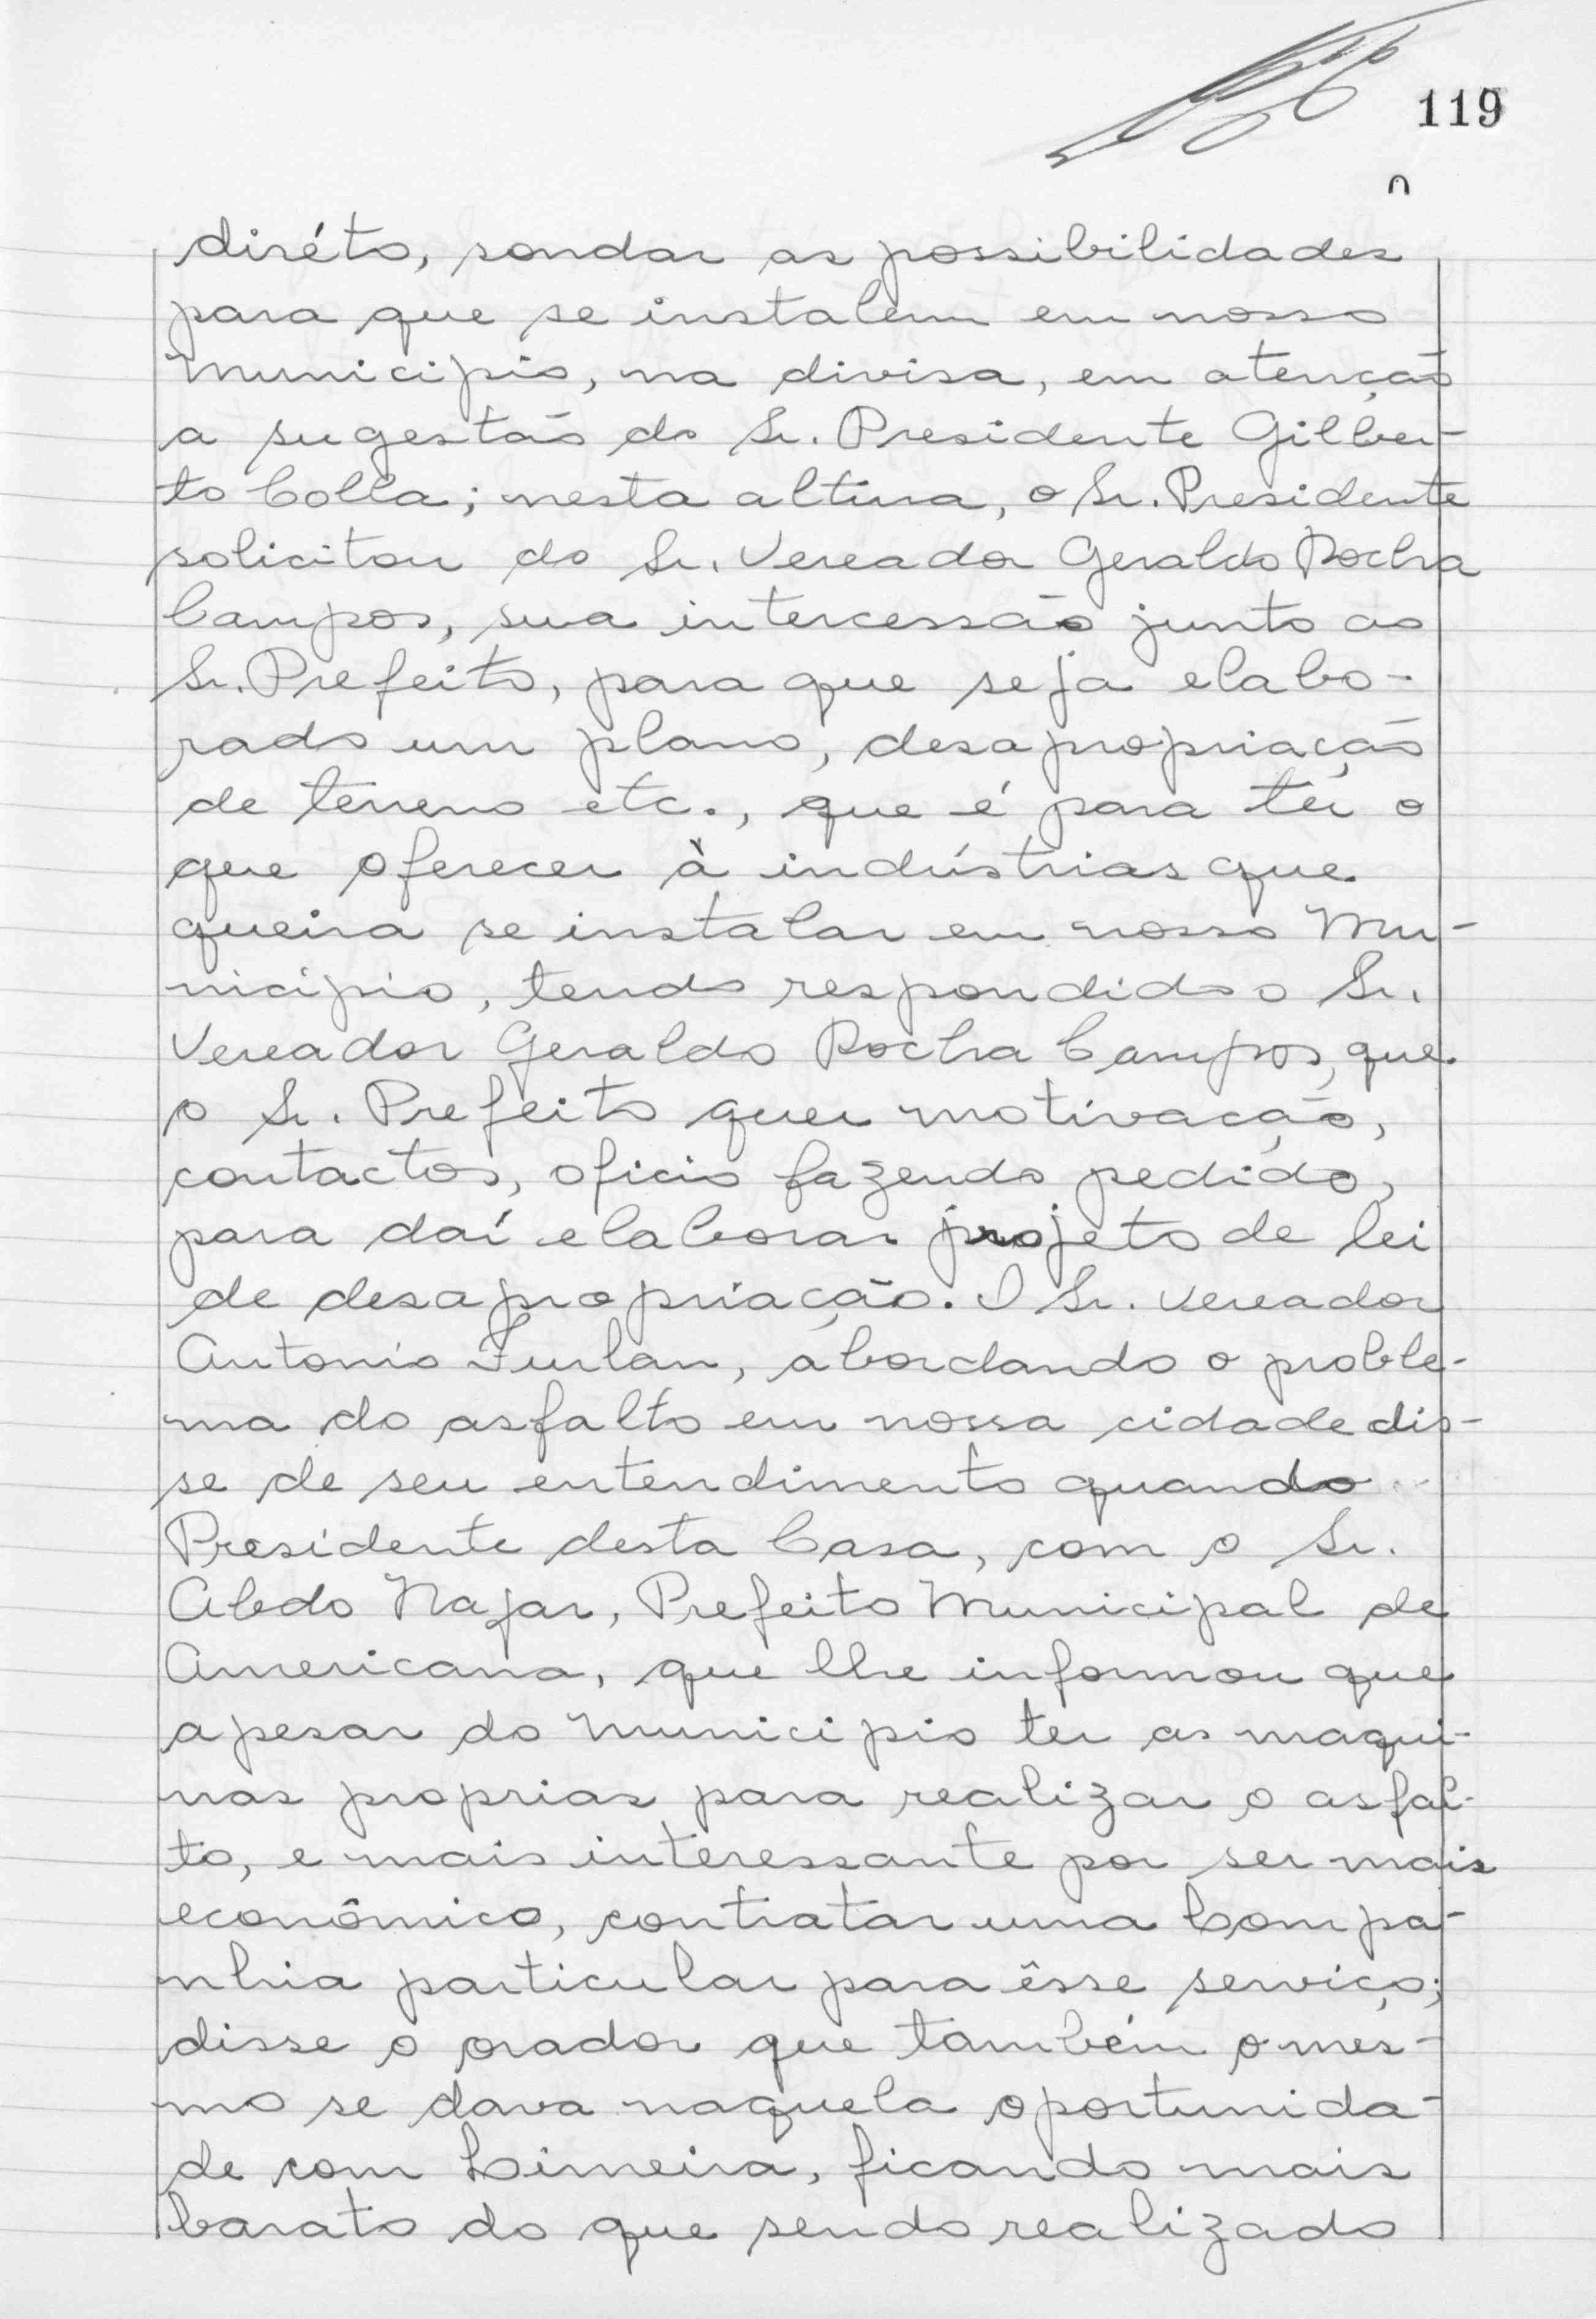 119
diréto, sondar as possibilidades
para que se instalem em nosso
Municipio, na divisa, em atenção
a sugestão do Sr. Presidente Gilber-
to Colla; nesta altura, o Sr. Presidente
solicitou do Sr. Vereador Geraldo Rocha
Campos, sua intercessão junto ao
Sr. Prefeito, para que seja elabo-
rado um plano, desapropriação
de terreno etc., que é para ter o
que oferecer à indústrias que
queira se instalar em nosso Mu-
nicipio, tendo respondido o Sr.
Vereador Geraldo Rocha Campos, que
o Sr. Prefeito quer motivação,
contactos, oficio fazendo pedido,
para daí elaborar projeto de lei
de desapropriação. O Sr. Vereador
Antonio Furlan, abordando o proble-
ma do asfalto em nossa cidade dis-
se de seu entendimento quando
Presidente desta Casa, com o Sr.
Abdo Najar, Prefeito Municipal de
Americana, que lhe informou que
apesar do Municipio ter as maqui-
nas proprias para realizar o asfal-
to, e mais interessante por ser mais
econômico, contratar uma Compa-
nhia particular para êsse serviço;
disse o orador que também o mes-
mo se dava naquela oportunida-
de com Limeira, ficando mais
barato do que sendo realizado